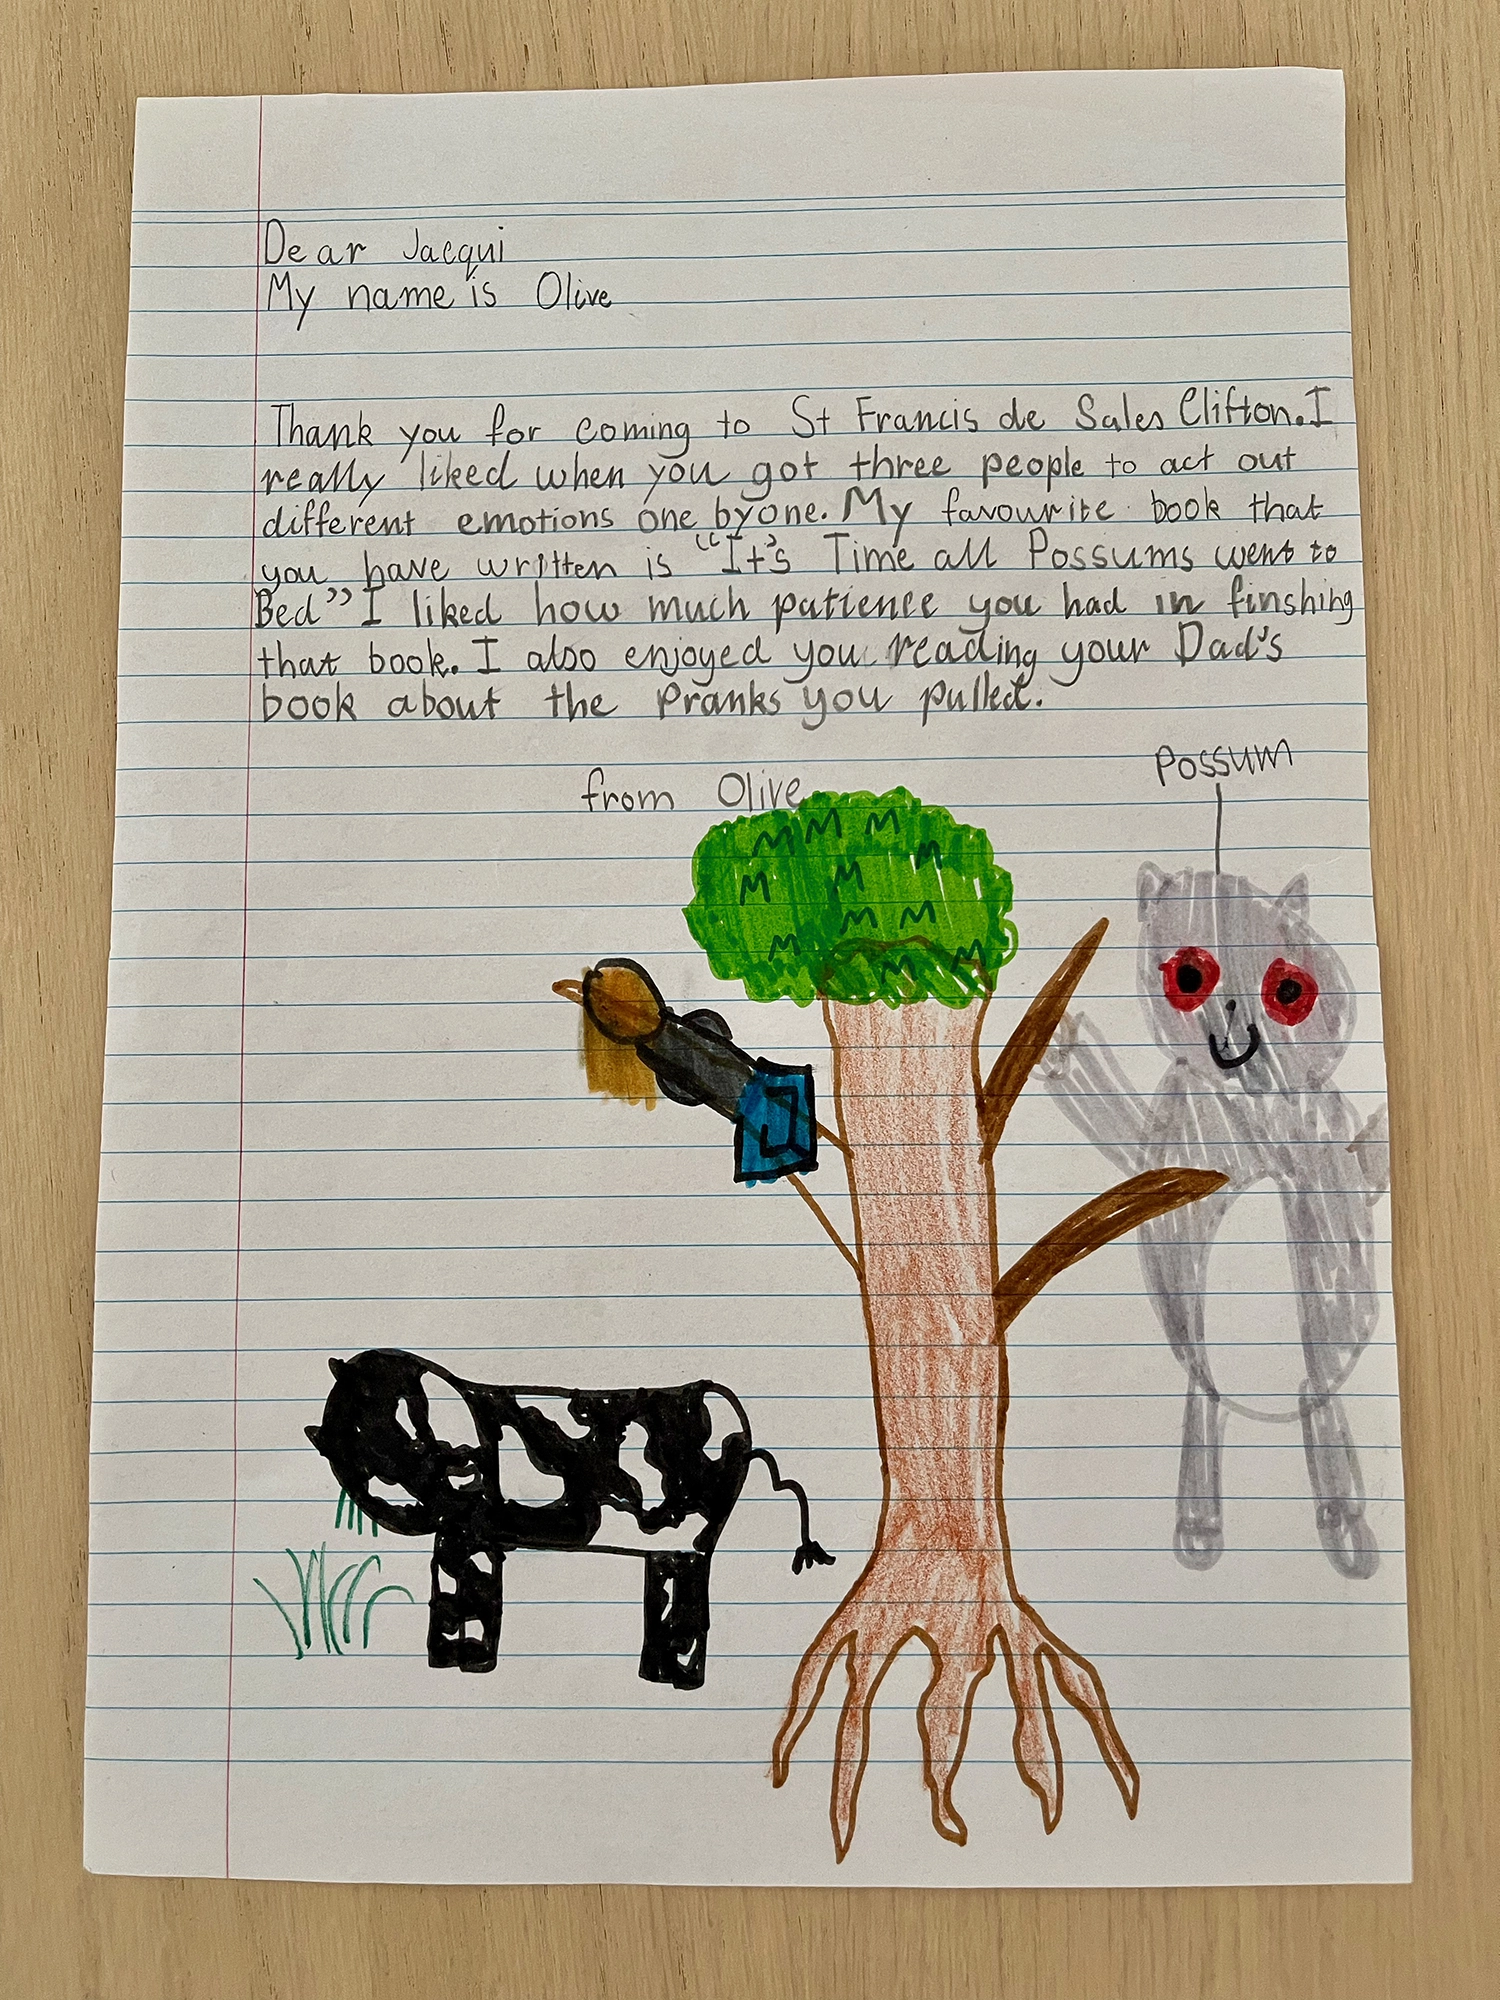 Dear Jacqui
My name is Olive
Thank you for coming to St Francis de Sales Clifton. I
really liked when you got three people to act out
different emotions one by one. My favourite book that
you have written is "It's Time all Possums went to
Bed" I liked how much patience you had in finshing
that book. I also enjoyed you reading your Dad's
book about the Pranks you pulled.
Possum
from Olive
M M M
M
M M
M M
M M M
J